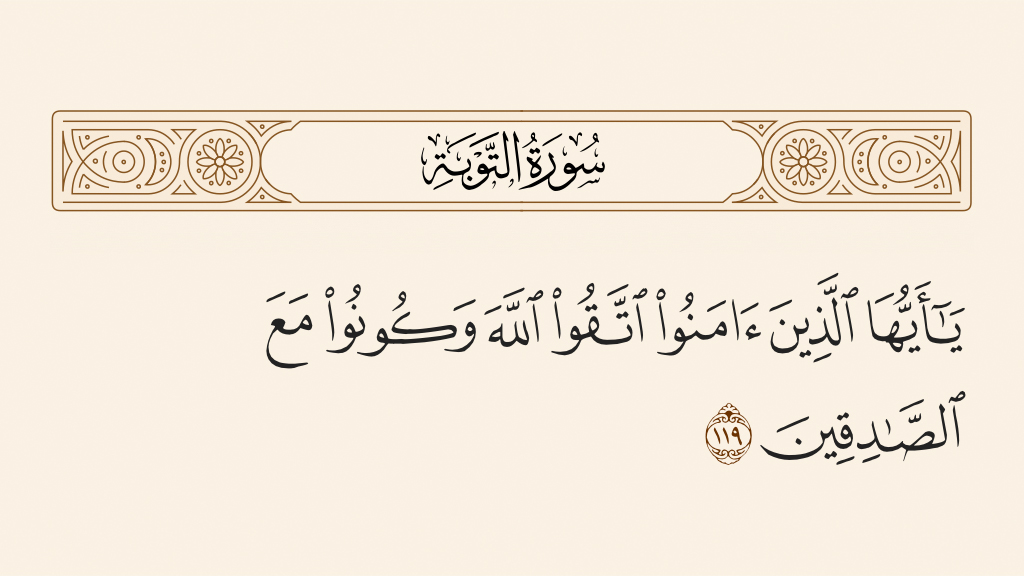 سُورَةُ التَّوْبَةِ
يَـٰٓأَيُّهَا ٱلَّذِينَ ءَامَنُوا۟ ٱتَّقُوا۟ ٱللَّهَ وَكُونُوا۟ مَعَ
ٱلصَّـٰدِقِينَ ١١٩